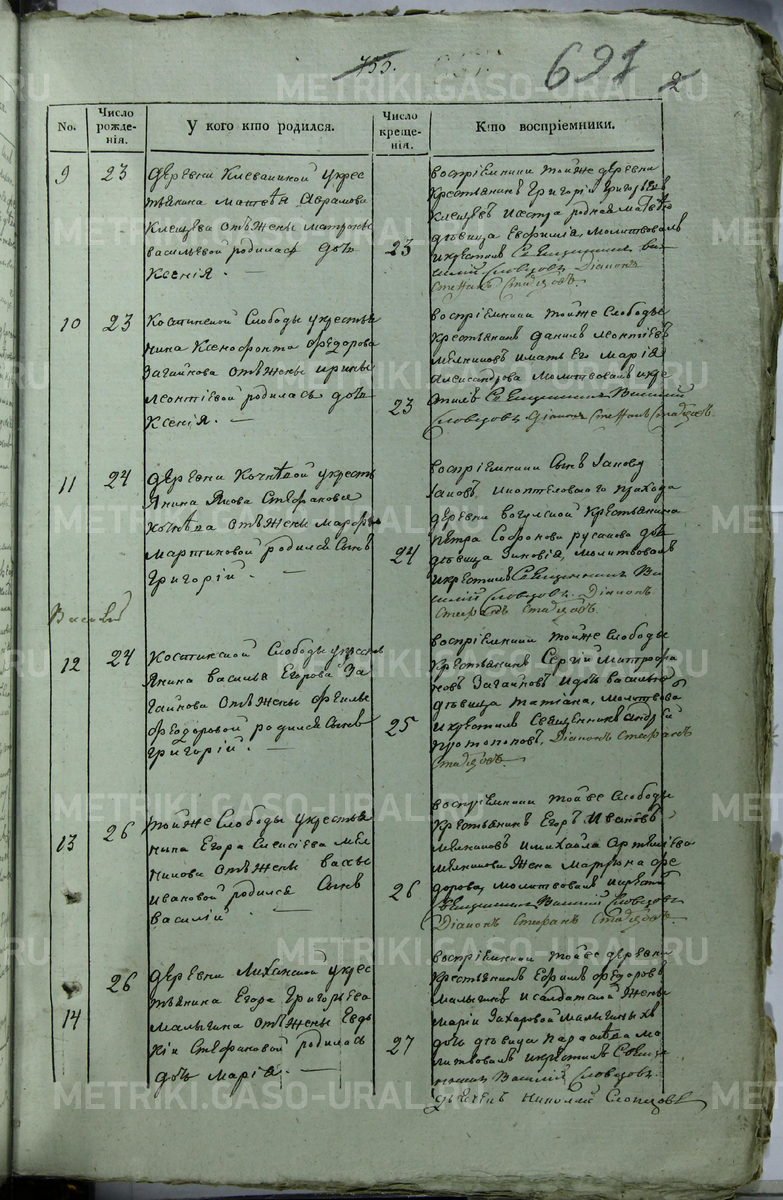 755.
691
2
No.
Число рожде-нія.
У кого кто родился.
Число креще-нія.
Кто воспріемники.
9
23
деревни Клевакиной у крес
тьянина Матвѣя Аврамова
Клещева отъ жены Матроны
васильевой родилась дочь
Ксенія. —
23
воспріемники тойже деревни
крестьянинъ Григорій Григорьевъ
Клещевъ и сестра родная Матвѣю
дѣвица Евфимія, молитвовалъ
и крестилъ Священникъ Ва
силій Словцовъ Діаконъ
Стефанъ Стадуховъ.
10
23
Костинской Слободы у крестья
нина Ксенофонта Федорова
Загайнова отъ жены Ирины
леонтіевой родилась дочь
Ксенія. —
23
воспріемники тойже Слободы
крестьянинъ Данилъ Леонтіевъ
Мелниковъ и мать его Марія
Александрова молитвовалъ и кре
стилъ Священникъ Василій
Словцовъ Діаконъ Стефанъ
11
24
деревни Кочнѣвой у кресть
янина Якова Стефанова
Кочнѣва отъ жены Марфы
Мартиновой родился сынъ
Григорій. —
24
воспріемники сынъ Іакову
Іаковъ, прихода
деревни вогулской крестьянина
Петра Софронова Русакова дочь
дѣвица Зиновія, молитвовалъ
и крестилъ Священникъ Ва
силій Словцовъ. Діаконъ
Стефанъ
Василій
12
24
Костинской Слободы у кресть
янина василья Егорова За
гайнова отъ жены
Феодоровой родился сынъ
Григорій. —
25
воспріемники тойже Слободы
крестьянинъ Сергій Митрофа
новъ Загайновъ и дочь василья
дѣвица Татіана, молитвова
и крестилъ Священникъ Андрей
Протопоповъ, Діаконъ Стефанъ
13
26
тойже Слободы у крестья
нина Егора Елисіева Мел
никова отъ жены Вассы
ивановой родился сынъ
Василій —
26
воспріемники тойже Слободы
крестьянинъ Егоръ Ивановъ
Мелниковъ и Михайла Артеміева
Мелникова жена Матрона Фе
дорова, молитвовалъ и крестил
Священникъ Василій Словцовъ
Діаконъ Стефанъ
14
26
деревни Лиханской у крес
тьянина Егора Григорьева
Малыгина отъ жены Евдо
кіи Стефановой родилась
дочь Марія. —
27
воспріемники тойже деревни
крестьянинъ Ефимъ Федоровъ
Малыгинъ и салдатской жены
Маріи Захаровой Малыгиныхъ
дочь дѣвица Параскева мо
литвовалъ и крестилъ Свяще
нникъ Василій Словцовъ
дьячекъ Николай Словцовъ
METRIKI.GASO-URAL.RU